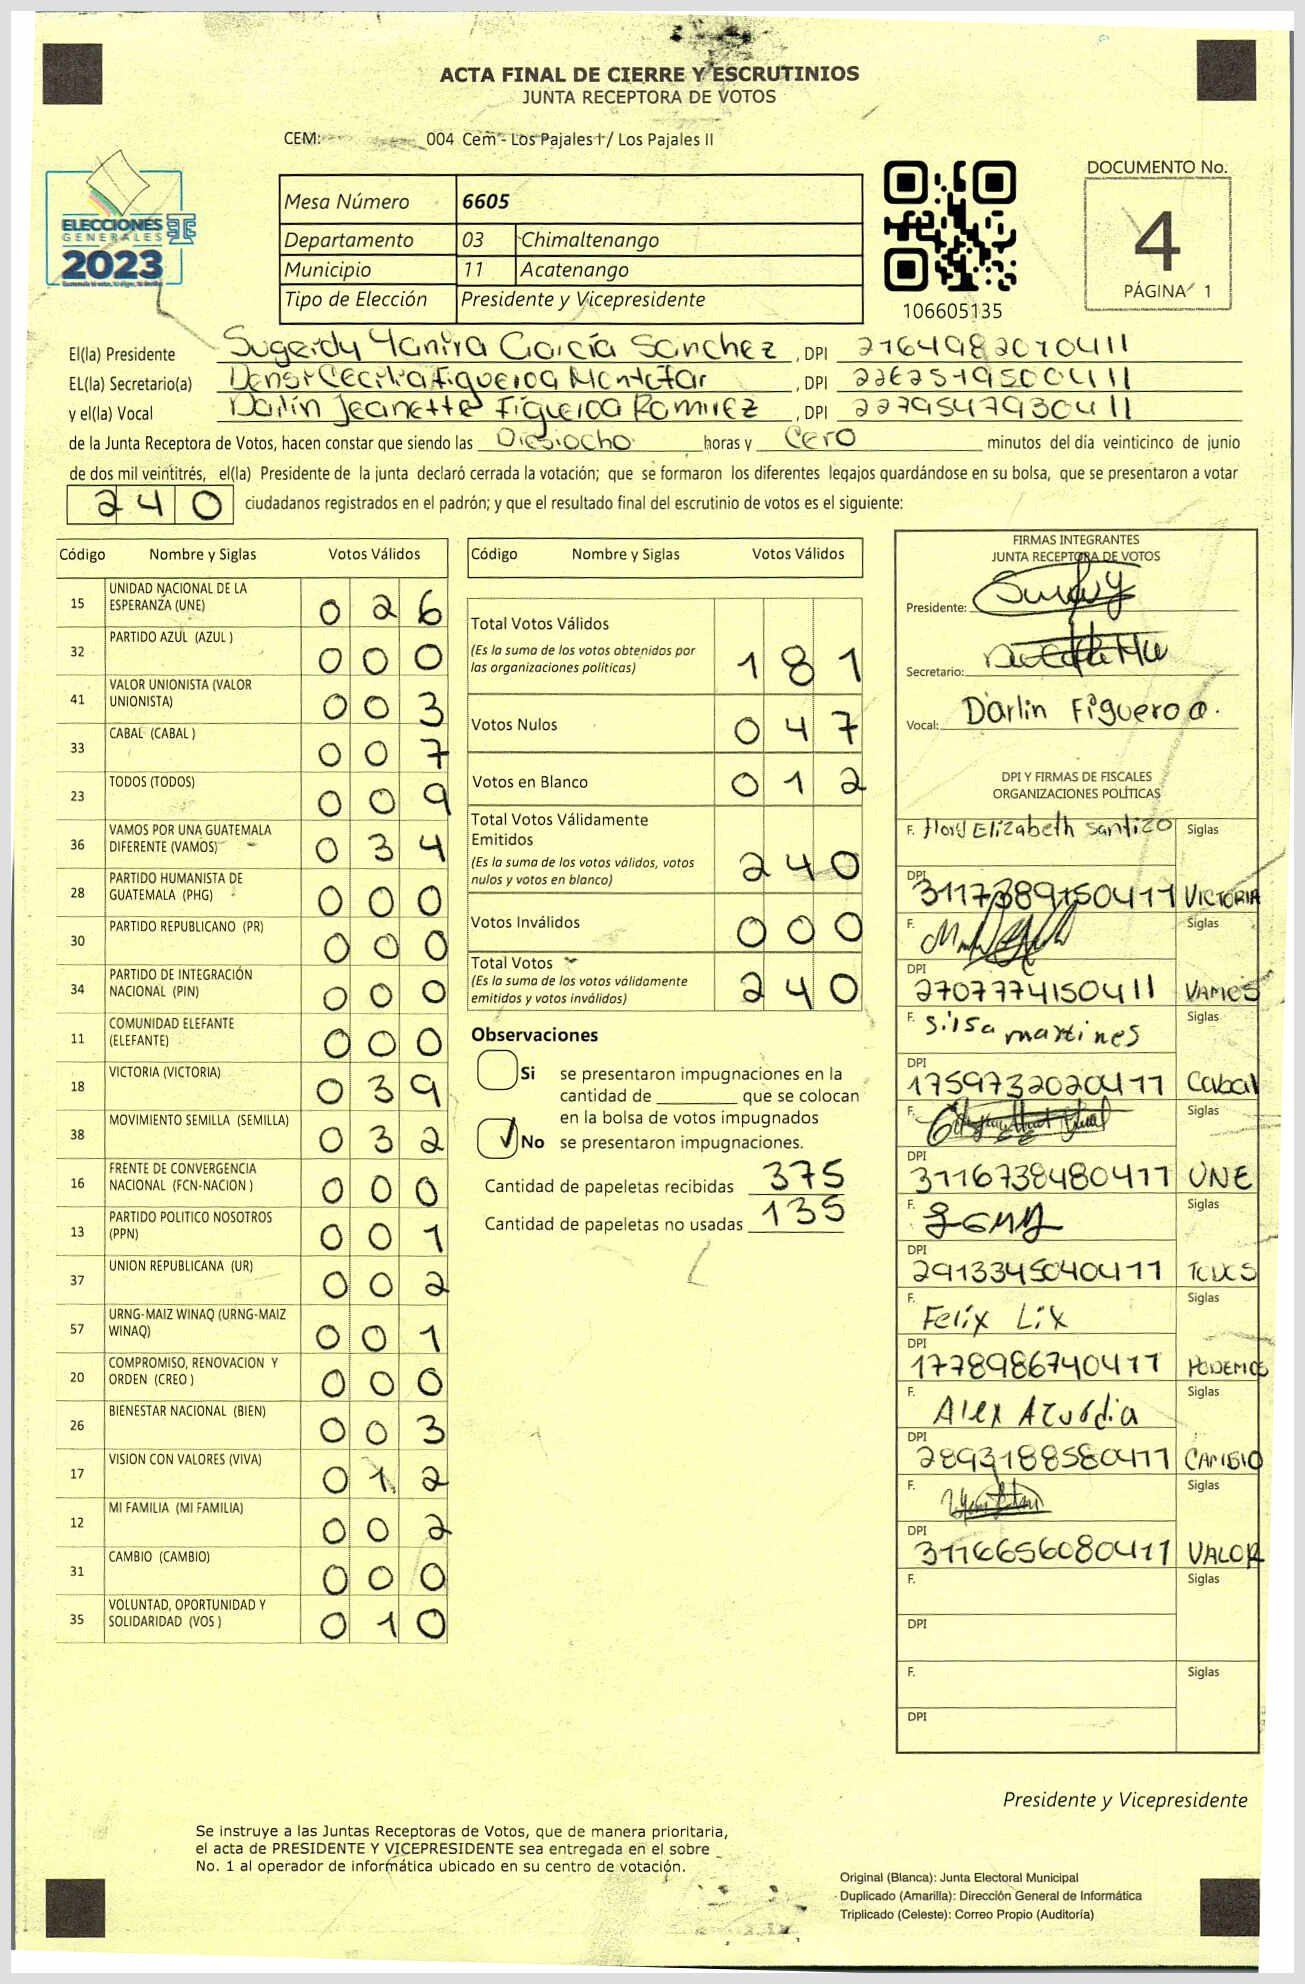 ACTA FINAL DE CIERRE Y ESCRUTINIOS
JUNTA RECEPTORA DE VOTOS
CEM: 004 Cem - Los Pajales I / Los Pajales II
ELECCIONES
GENERALES
2023
Mesa Número 6605
Departamento 03 Chimaltenango
Municipio 11 Acatenango
Tipo de Elección Presidente y Vicepresidente
106605135
DOCUMENTO No.
4
PÁGINA 1
El(la) Presidente Sugeidy Yanira García Sánchez, DPI 2164982070411
EL(la) Secretario(a) Cecilia Figueroa, DPI
y el(la) Vocal Darlin Jeanette Figueroa Ramirez, DPI 2279547930411
de la Junta Receptora de Votos, hacen constar que siendo las Diesiocho horas y Cero minutos del día veinticinco de junio
de dos mil veintitrés, el(la) Presidente de la junta declaró cerrada la votación; que se formaron los diferentes legajos quardándose en su bolsa, que se presentaron a votar
240 ciudadanos registrados en el padrón; y que el resultado final del escrutinio de votos es el siguiente:
Código Nombre y Siglas Votos Válidos
15 UNIDAD NACIONAL DE LA ESPERANZA (UNE) 026
32 PARTIDO AZUL (AZUL ) 000
41 VALOR UNIONISTA (VALOR UNIONISTA) 003
33 CABAL (CABAL ) 007
23 TODOS (TODOS) 009
36 VAMOS POR UNA GUATEMALA DIFERENTE (VAMOS) 034
28 PARTIDO HUMANISTA DE GUATEMALA (PHG) 000
30 PARTIDO REPUBLICANO (PR) 000
34 PARTIDO DE INTEGRACIÓN NACIONAL (PIN) 000
11 COMUNIDAD ELEFANTE (ELEFANTE) 000
18 VICTORIA (VICTORIA) 039
38 MOVIMIENTO SEMILLA (SEMILLA) 032
16 FRENTE DE CONVERGENCIA NACIONAL (FCN-NACION ) 000
13 PARTIDO POLITICO NOSOTROS (PPN) 001
37 UNION REPUBLICANA (UR) 002
57 URNG-MAIZ WINAQ (URNG-MAIZ WINAQ) 001
20 COMPROMISO, RENOVACION Y ORDEN (CREO ) 000
26 BIENESTAR NACIONAL (BIEN) 003
17 VISION CON VALORES (VIVA) 012
12 MI FAMILIA (MI FAMILIA) 002
31 CAMBIO (CAMBIO) 000
35 VOLUNTAD, OPORTUNIDAD Y SOLIDARIDAD (VOS ) 010
Código Nombre y Siglas Votos Válidos
Total Votos Válidos 181
(Es la suma de los votos obtenidos por
las organizaciones políticas)
Votos Nulos 047
Votos en Blanco 012
Total Votos Válidamente
Emitidos 240
(Es la suma de los votos válidos, votos
nulos y votos en blanco)
Votos Inválidos 000
Total Votos 240
(Es la suma de los votos válidamente
emitidos y votos inválidos)
Observaciones
Si se presentaron impugnaciones en la
cantidad de ________ que se colocan
en la bolsa de votos impugnados
No se presentaron impugnaciones.
Cantidad de papeletas recibidas 375
Cantidad de papeletas no usadas 135
FIRMAS INTEGRANTES
JUNTA RECEPTORA DE VOTOS
Presidente:
Secretario:
Vocal: Darlin Figueroa.
DPI Y FIRMAS DE FISCALES
ORGANIZACIONES POLÍTICAS
F. Elizabeth Santizo Siglas
DPI 3117389150411 VICTORIA
F. Siglas
DPI 2707774150411 VAMOS
F. Silsa martines Siglas
DPI 1759732020411 Cabal
F. Siglas
DPI 3116738480411 UNE
F. Siglas
DPI 2913345040411 TODOS
F. Felix Lix Siglas
DPI 1778986740411 PODEMOS
F. Alex Azurdia Siglas
DPI 2893188580411 CAMBIO
F. Siglas
DPI 3116656080411 VALOR
F. Siglas
DPI
F. Siglas
DPI
Presidente y Vicepresidente
Se instruye a las Juntas Receptoras de Votos, que de manera prioritaria,
el acta de PRESIDENTE Y VICEPRESIDENTE sea entregada en el sobre
No. 1 al operador de informática ubicado en su centro de votación.
Original (Blanca): Junta Electoral Municipal
Duplicado (Amarilla): Dirección General de Informática
Triplicado (Celeste): Correo Propio (Auditoría)